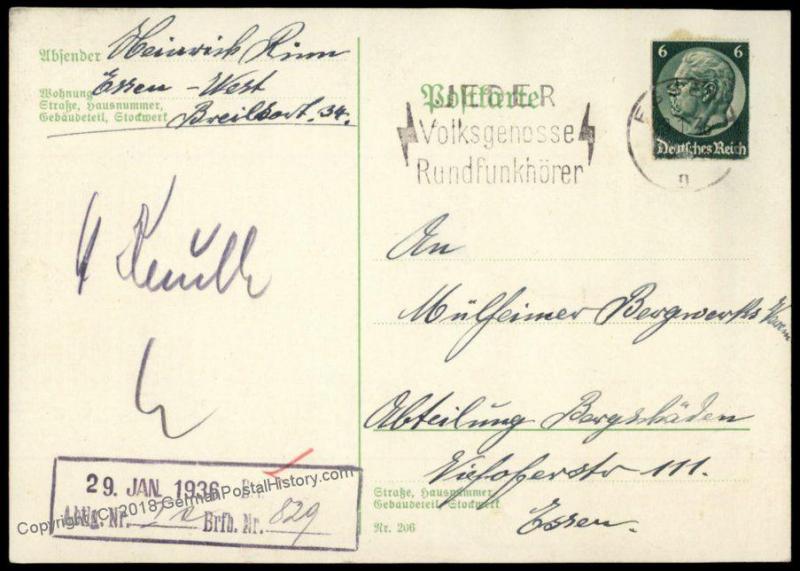 Absender Heinrich Rinn
Wohnung Essen - West
Straße, Hausnummer,
Gebäudeteil, Stockwerk Breilsort. 34.
Postkarte
JEDER
Volksgenosse
Rundfunkhörer
6 6
Deutsches Reich
n
An
Mülheimer Bergwerks Verein
Abteilung Bergschäden
111.
Straße, Hausnummer,
Gebäudeteil, Stockwerk
Essen.
Nr. 206
29. JAN. 1936
Abtg. Nr. Brfb. Nr. 829
Copyright (C) 2018 GermanPostalHistory.com